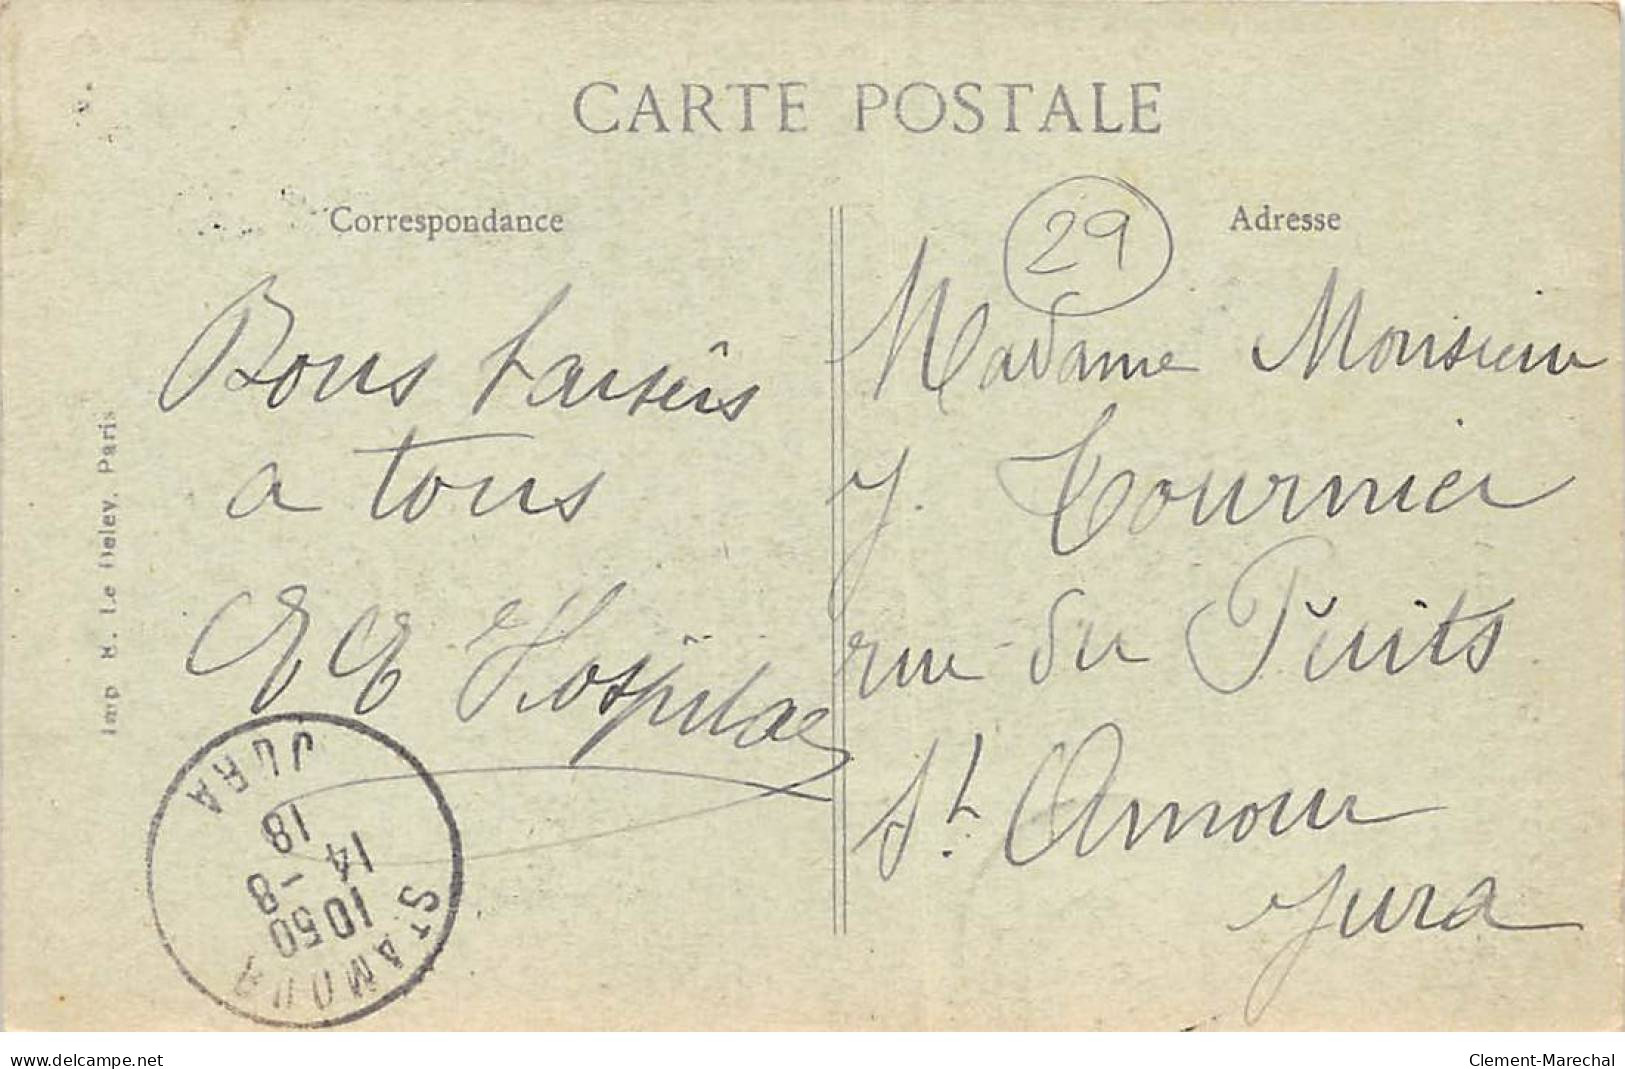 CARTE POSTALE
Correspondance
29
Adresse
Bons baisers
a tous
Madame Monsieur
J. Tournier
rue du Puits
St. Amour
Jura
Imp. H. Le Deley, Paris
ST AMOUR
10 50
14 - 8
18
JURA
www.delcampe.net
Clement-Marechal